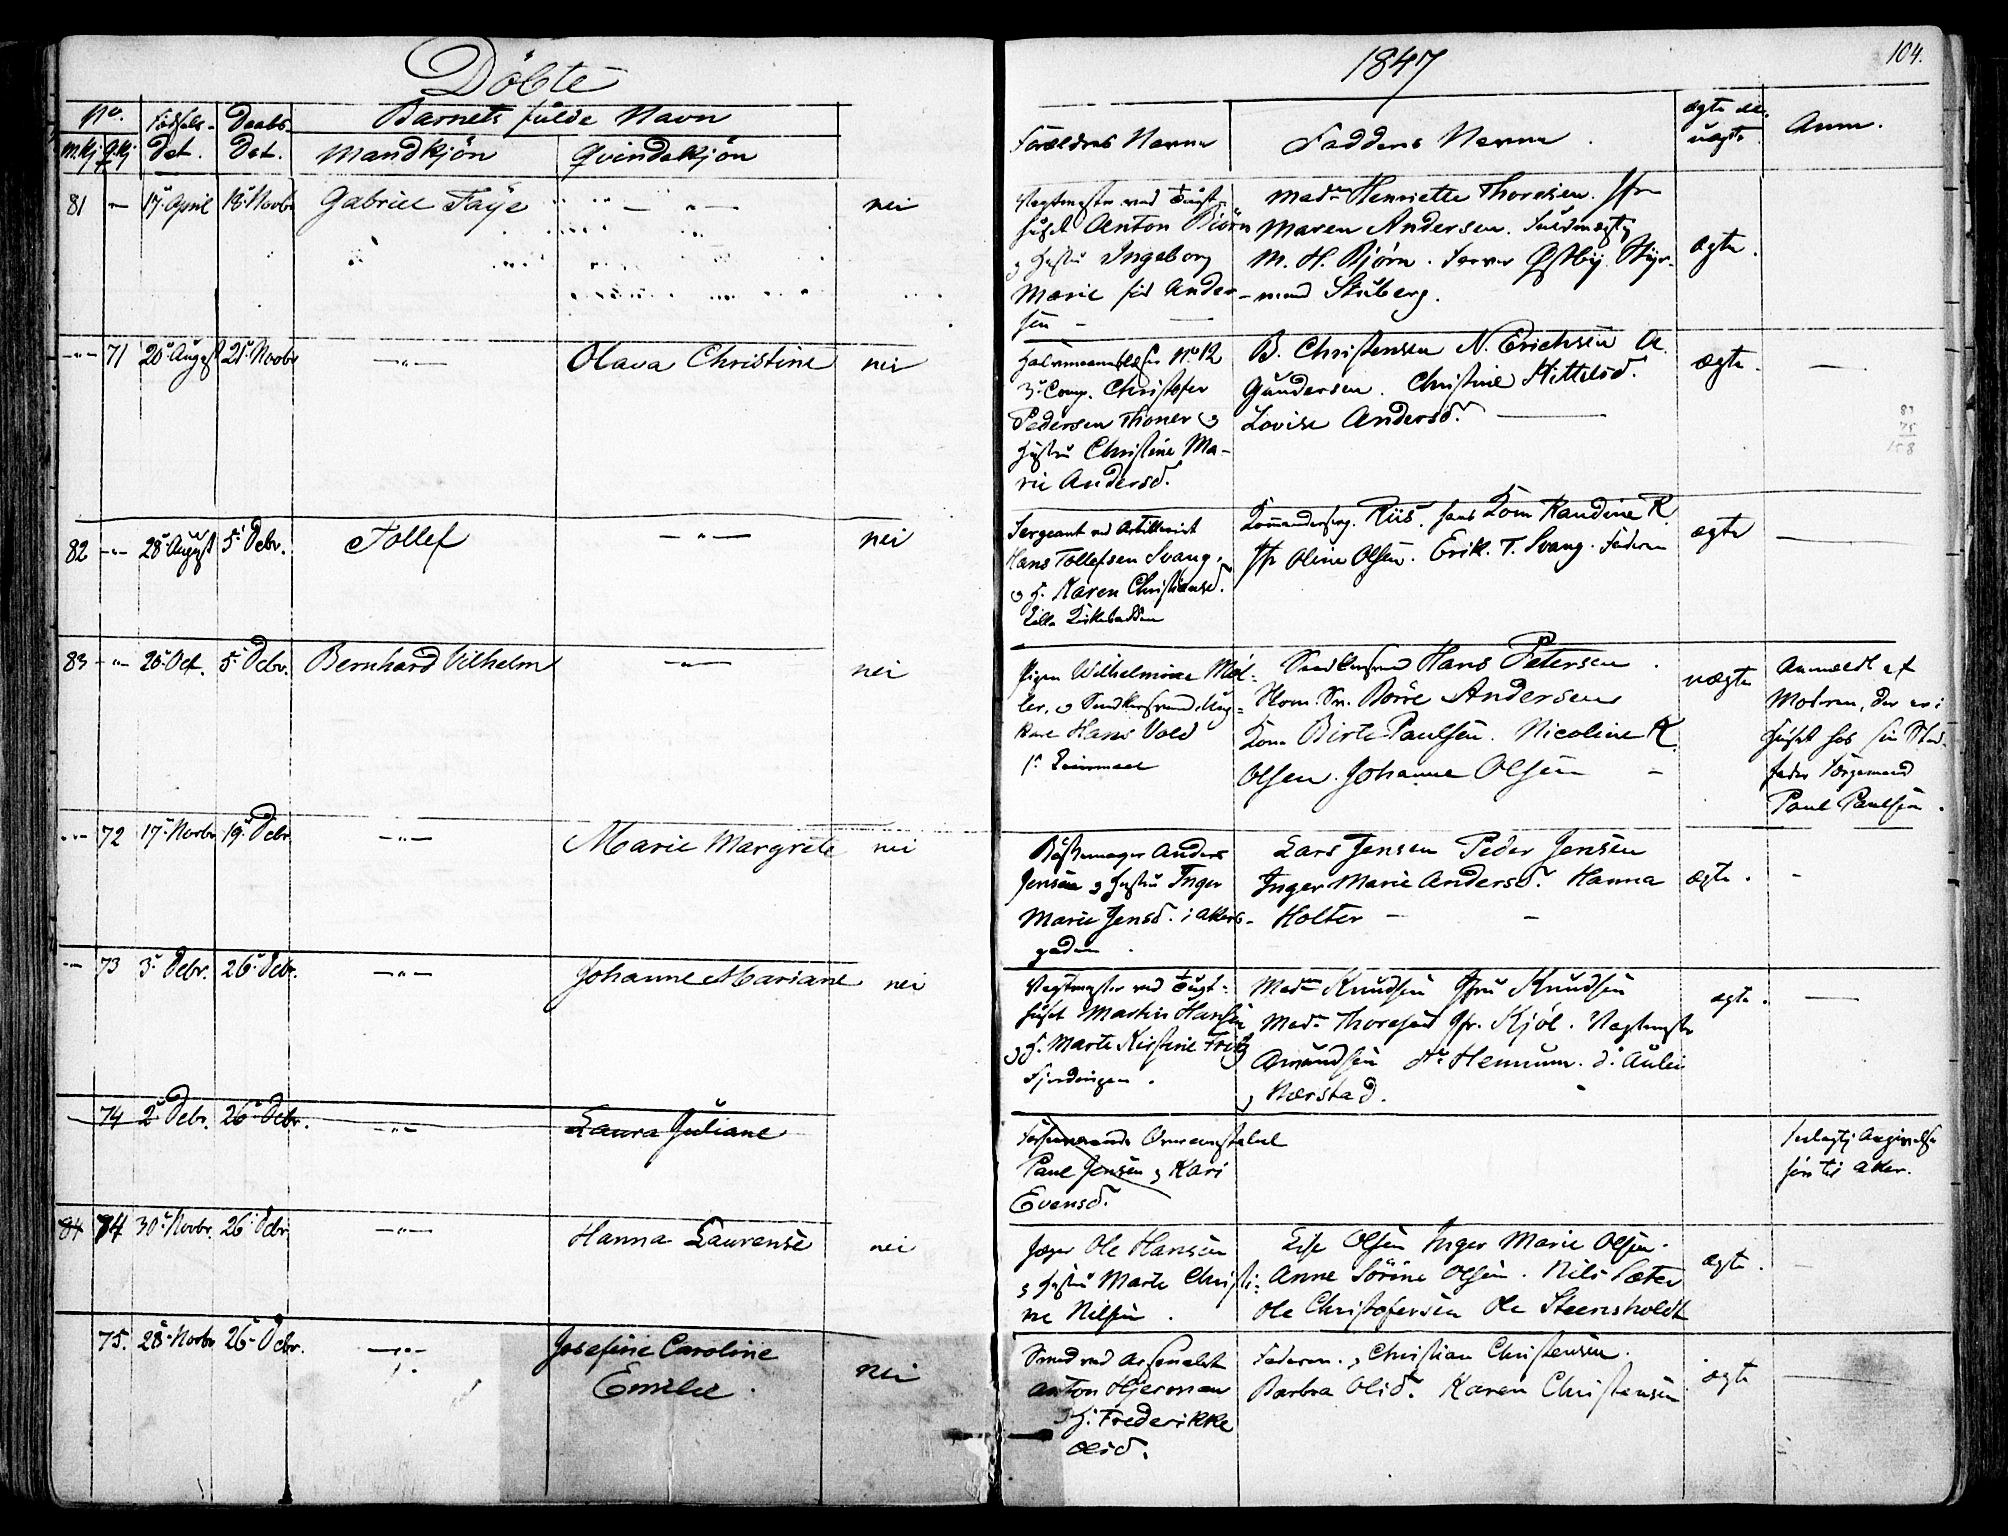 Döbte
1847
104.
No. Fødsels- Daabs- Barnets fulde Navn
M.Kj Q.Kj Dat. Dat. Mandkjön Qvindekjön
Forældres Navne Faddernes Navne ægte el. uægte Anm.
81 - 17 April 18 Novbr Gabriel Faye - " - nei
Vagtmester ved Tugt-
huset Anton Biörn
og Hustru Ingeborg
Marie fød Ander-
sen -
Mad. Henriette Thoresen. Jfr
Maren Andersen. Fuldmægtig
M. H. Bjørn. Farver Østby Styr-
mand Skuberg.
ægte.
-"- 71 20 August 21 Novbr -"- Olava Christine nei
No 12
3 Comp. Christofer
Pedersen Thoner og
Hustru Christine Ma-
rie Andersd.
B. Christensen N. Erichsen A.
Gundersen. Christine Kittelsd.
Lovise Andersd.
ægte.
83
75
158
82 -"- 28 August 5 Debr. Tollef -"- nei
Sergeant ved Artilleriet
Hans Tollefsen Svang.
og H. Karen Christiansd.
Lille
Riis. hans Kone Randine R.
Jfr Oline Olsen. Erik. T. Svang. Faderen
ægte
83 -"- 20 Oct. 5 Debr. Bernhard Vilhelm -"- nei
Pigen Wilhelmine Møl-
ler, og Hans Vold
1 Leiermaal
Hans Petersen.
Sm. Börre Andersens
Kone Birte Paulsen. Nicoline K.
Olsen. Johanne Olsen -
uægte
Anmeldt af
Moderen, der er i
huset hos sin Sted-
fader Borgermand
Paul Paulsen.
-"- 72 17 Novbr 19 Debr -"- Marie Margrete nei
Bøssemager Anders
Jensen og Hustru Inger
Marie Jensd. i Akers-
gaden.
Lars Jensen Peder Jensen
Inger Marie Andersd. Hanna
Holter - -
ægte. -
-"- 73 3 Debr. 26 Debr. -"- Johanne Mariane nei
Vagtmester ved Tugt-
huset Martin Hansen
og H. Marte Kirstine Fritz
Fjerdingen.
Madm Knudsen Jfru Knudsen
Mad. Thoresen Jfr. Kjöl. Vagtmester
Amundsen Hennum. d. Aulie
og Nærstad.
ægte.
74 2 Debr. 26 Debr. -"- Laura Juliane
Paul Jensen og Kari
Evensd.
Angivelse
hen til Aker.
84 74 30 Novbr. 26 Debr -"- Hanna Laurense nei
Jæger Ole Hansen
og Hustru Marte Christi-
ne Nilsen.
Else Olsen Inger Marie Olsen.
Anne Sörine Olsen. Nils Sæter
Ole Christofersen Ole Steensholdt
ægte. -
75. 28 Novbr 26 Debr. -"- Josefine Caroline
Emilie. nei
Smed ved Arsenalet
Anton Hjerman
og H. Frederikke
Olsd.
Faderen. og Christian Christensen.
Barbra Olsd. Karen Christensen
ægte